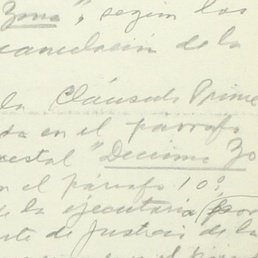 Zona", según los
cancelación de la
la Cláusula Prime
da en el párrafo
estal "Decima Zo
en el párrafo 10º
de la ejecutoria (por
te de Justicia de la